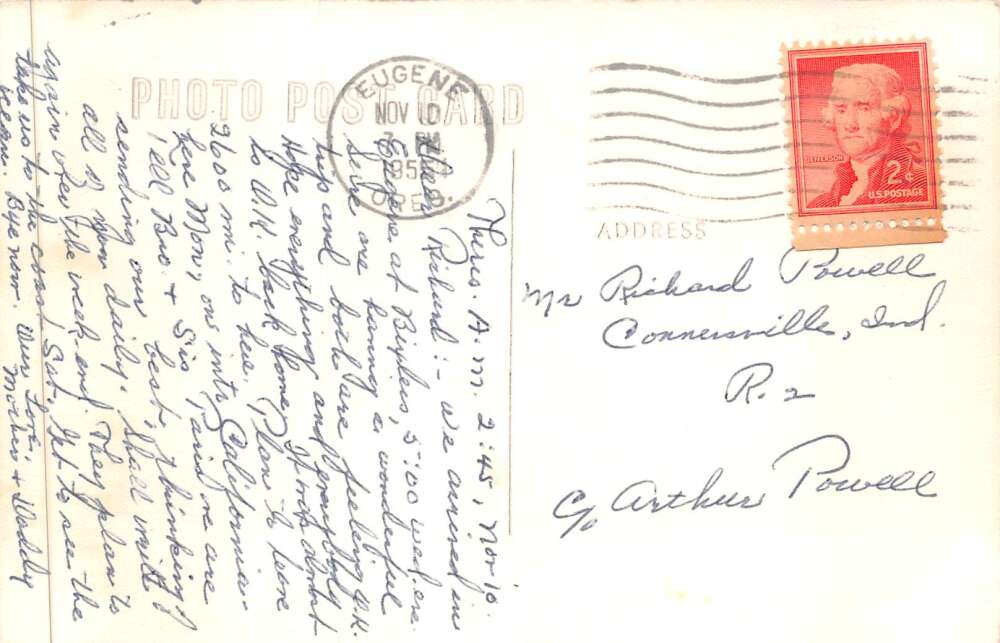 PHOTO POST CARD
EUGENE
NOV 10
PM
195
OREG.
JEFFERSON
2¢
U.S. POSTAGE
ADDRESS
Mr Richard Powell
Connersville, Ind.
R. 2
C/o Arthur Powell
Thurs. A.M. 2:45, Nov 10
Dear Richard:- We arrived in
Eugene at 5:00 Wed. eve.
are having a wonderful
trip and both are feeling O.K.
Hope everything and everybody
is O.K. back home. It was about
2600 mi. to here. Plan to leave
here Mon, on into California.
Tell Bro. & Sis we are
sending our best, thinking of
all of you daily. Shall write
again over the week end. They plan to
take us to the coast Sat. get to see the
ocean. Bye now. Our Love,
Mother & Daddy